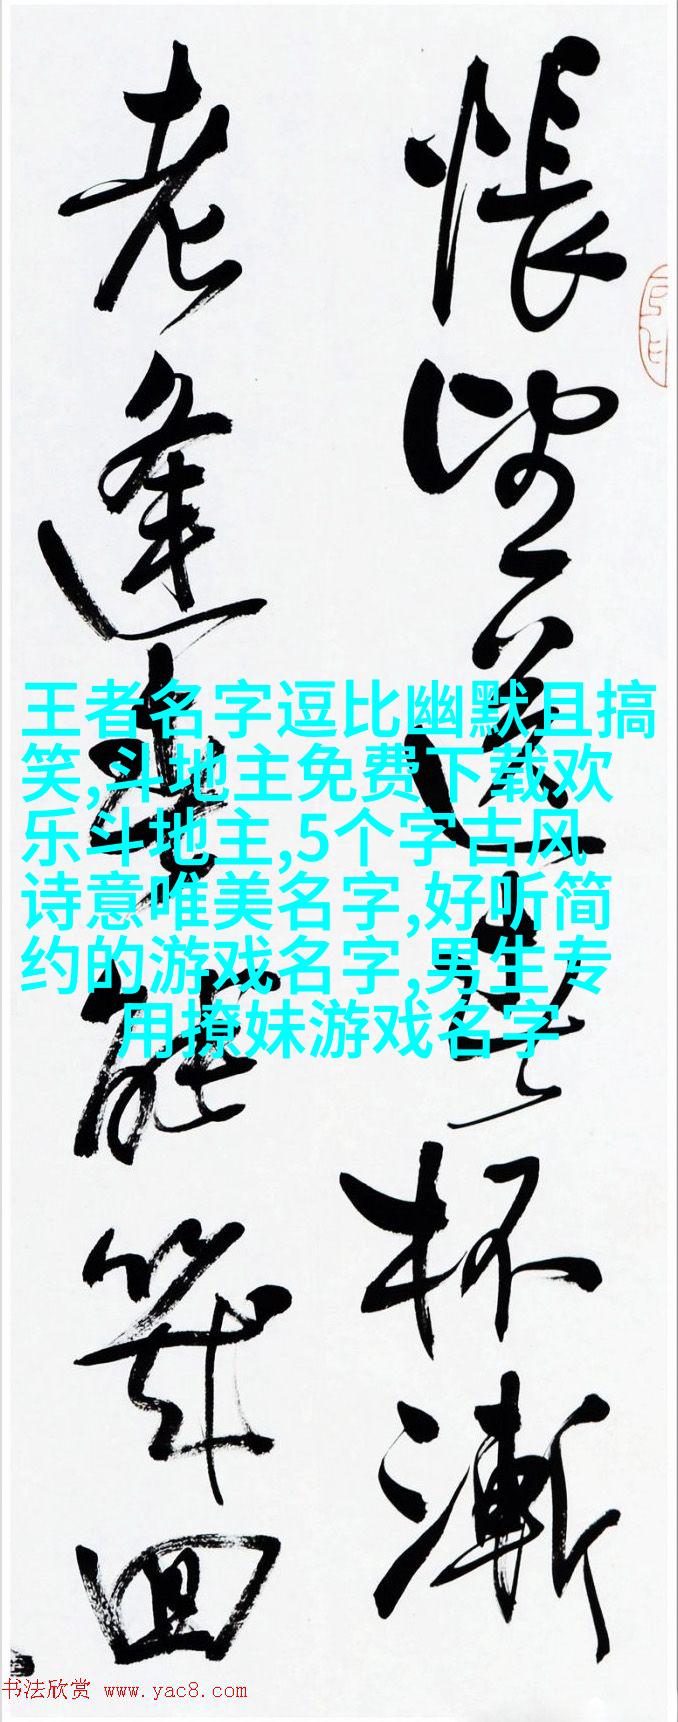 悵望送春杯漸
老逢春能幾回
王者名字逗比幽默且搞
笑,斗地主免费下载欢
乐斗地主,5个字古风
诗意唯美名字,好听简
约的游戏名字,男生专
用撩妹游戏名字
书法欣赏 www.yac8.com